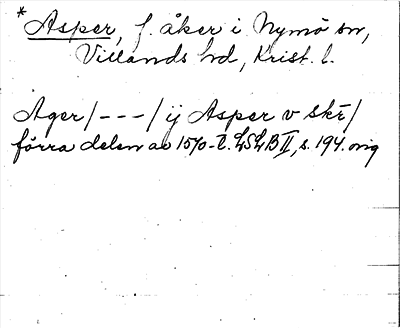 * Asper, f. åker i Nymö sn,
Villands hd, Krist. l.
Ager/---/ ij Asper v skr/
förra delen av 1570-t. LSLB II, s. 194. orig